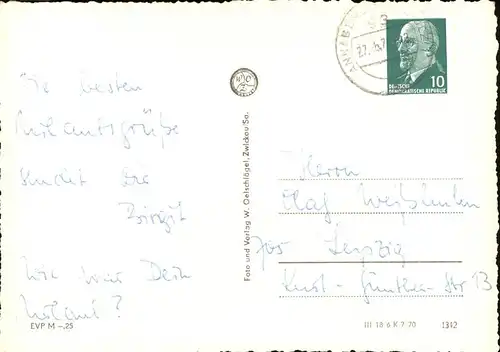 Die besten
Urlaubsgrüße
sendet Dir
Birgit
Wie war Dein
Urlaub?
EVP M -,25
Foto und Verlag W. Oetschlägel, Zwickau/Sa.
27.
10
DEUTSCHE
DEMOKRATISCHE REPUBLIK
Herrn
Olaf
705 Leipzig
Kurt-Günther-Str 13
III 18 6 K 7 70
1312